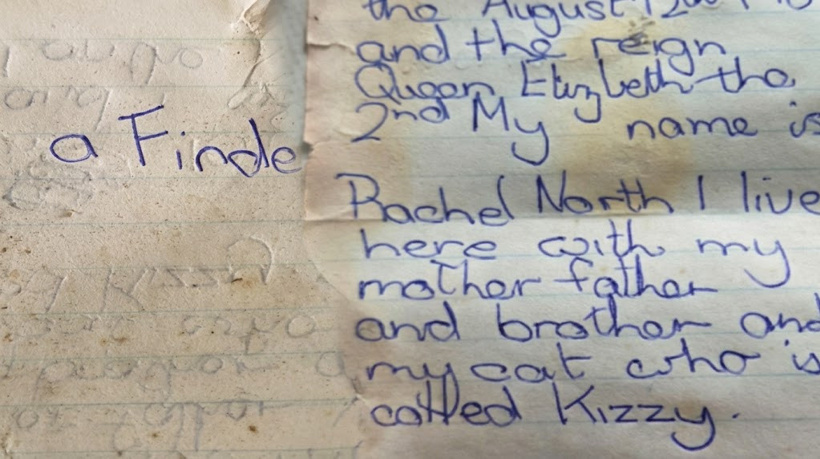 a Finde
the August 12th
and the reign
Queen Elizbeth the
2nd My name is
Rachel North I live
here with my
mother father
and brother and
my cat who is
called Kizzy.